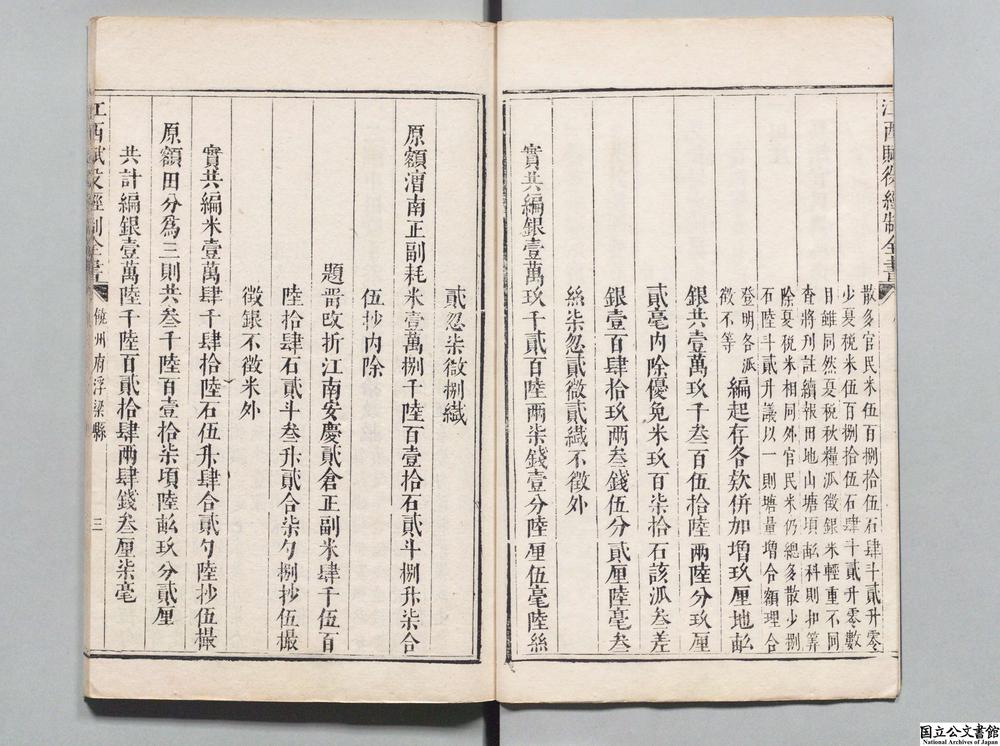 江西賦役經制全書
散多官民米伍百捌拾伍石肆斗貳升零
少夏稅米伍百捌拾伍石肆斗貳升零數
目雖同然夏稅秋糧派徵銀米輕重不同
查將刋註續報田地山塘頃畝科則扣筭
除夏稅米相同外官民米仍總多散少捌
石陸斗貳升議以一則塘量增合額理合
登明各派
徵不等
編起存各款併加增玖厘地畝
銀共壹萬玖千叁百伍拾陸兩陸分玖厘
貳毫內除優免米玖百柒拾石該派叁差
銀壹百肆拾玖兩叁錢伍分貳厘陸毫叁
絲柒忽貳微貳纖不徵外
實共編銀壹萬玖千貳百陸兩柒錢壹分陸厘伍毫陸絲
貳忽柒微捌纖
原額漕南正副耗米壹萬捌千陸百壹拾石貳斗捌升柒合
伍抄內除
題晋改折江南安慶貳倉正副米肆千伍百
陸拾肆石貳斗叁升貳合柒勺捌抄伍撮
徵銀不徵米外
實共編米壹萬肆千肆拾陸石伍升肆合貳勺陸抄伍撮
原額田分爲三則共叁千陸百壹拾柒頃陸畝玖分貳厘
共計編銀壹萬陸千陸百貳拾肆兩肆錢叁厘柒毫
江西賦役經制全書
饒州府浮梁縣
三
国立公文書館
National Archives of Japan